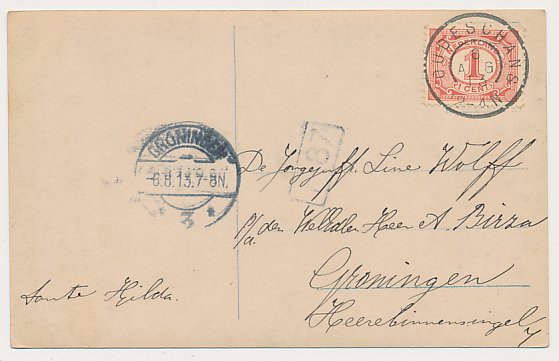 OUDESCHANS
6
AUG
13
2-4N
NEDERLAND
1
1 CENT
GRONINGEN
6.8.13.7-8N.
3
87
De Jongejuffr. Line Wolff
p/a. den WelEdlen Heer A. Birza
Groningen
Heerebinnensingel
Tante Hilda.